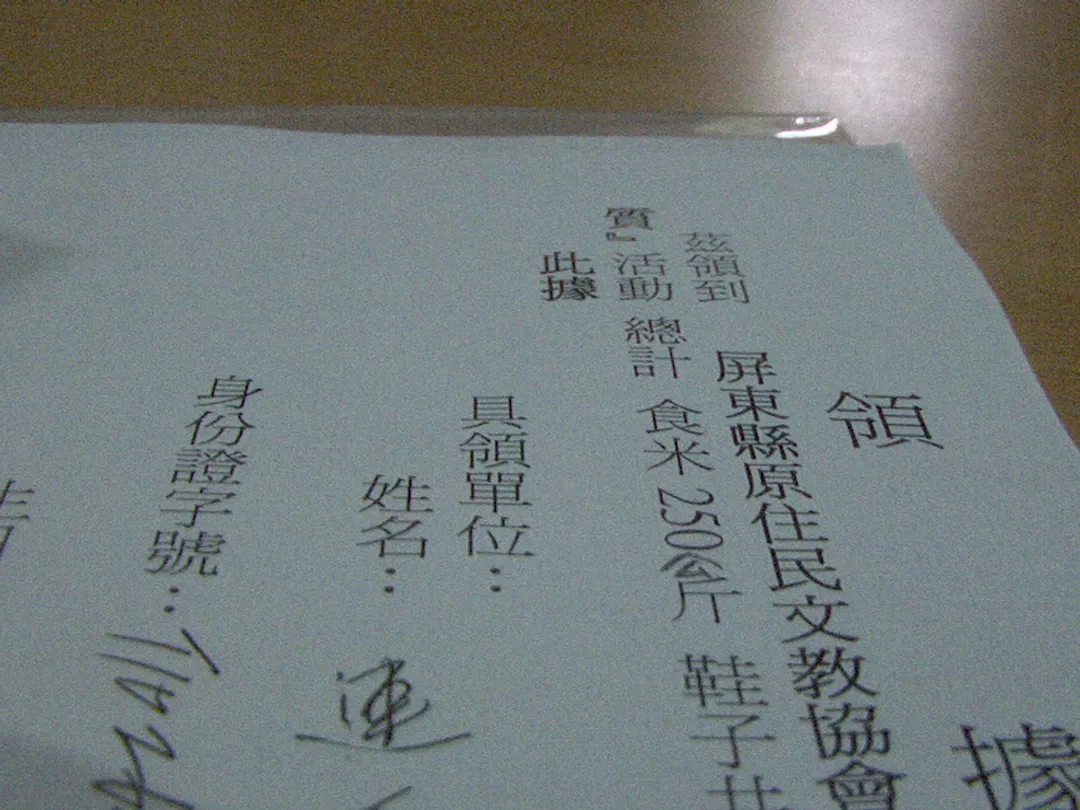 領據
茲領到 屏東縣原住民文教協會
質』活動 總計 食米250公斤 鞋子共
此據
具領單位：
姓名：連
身份證字號：